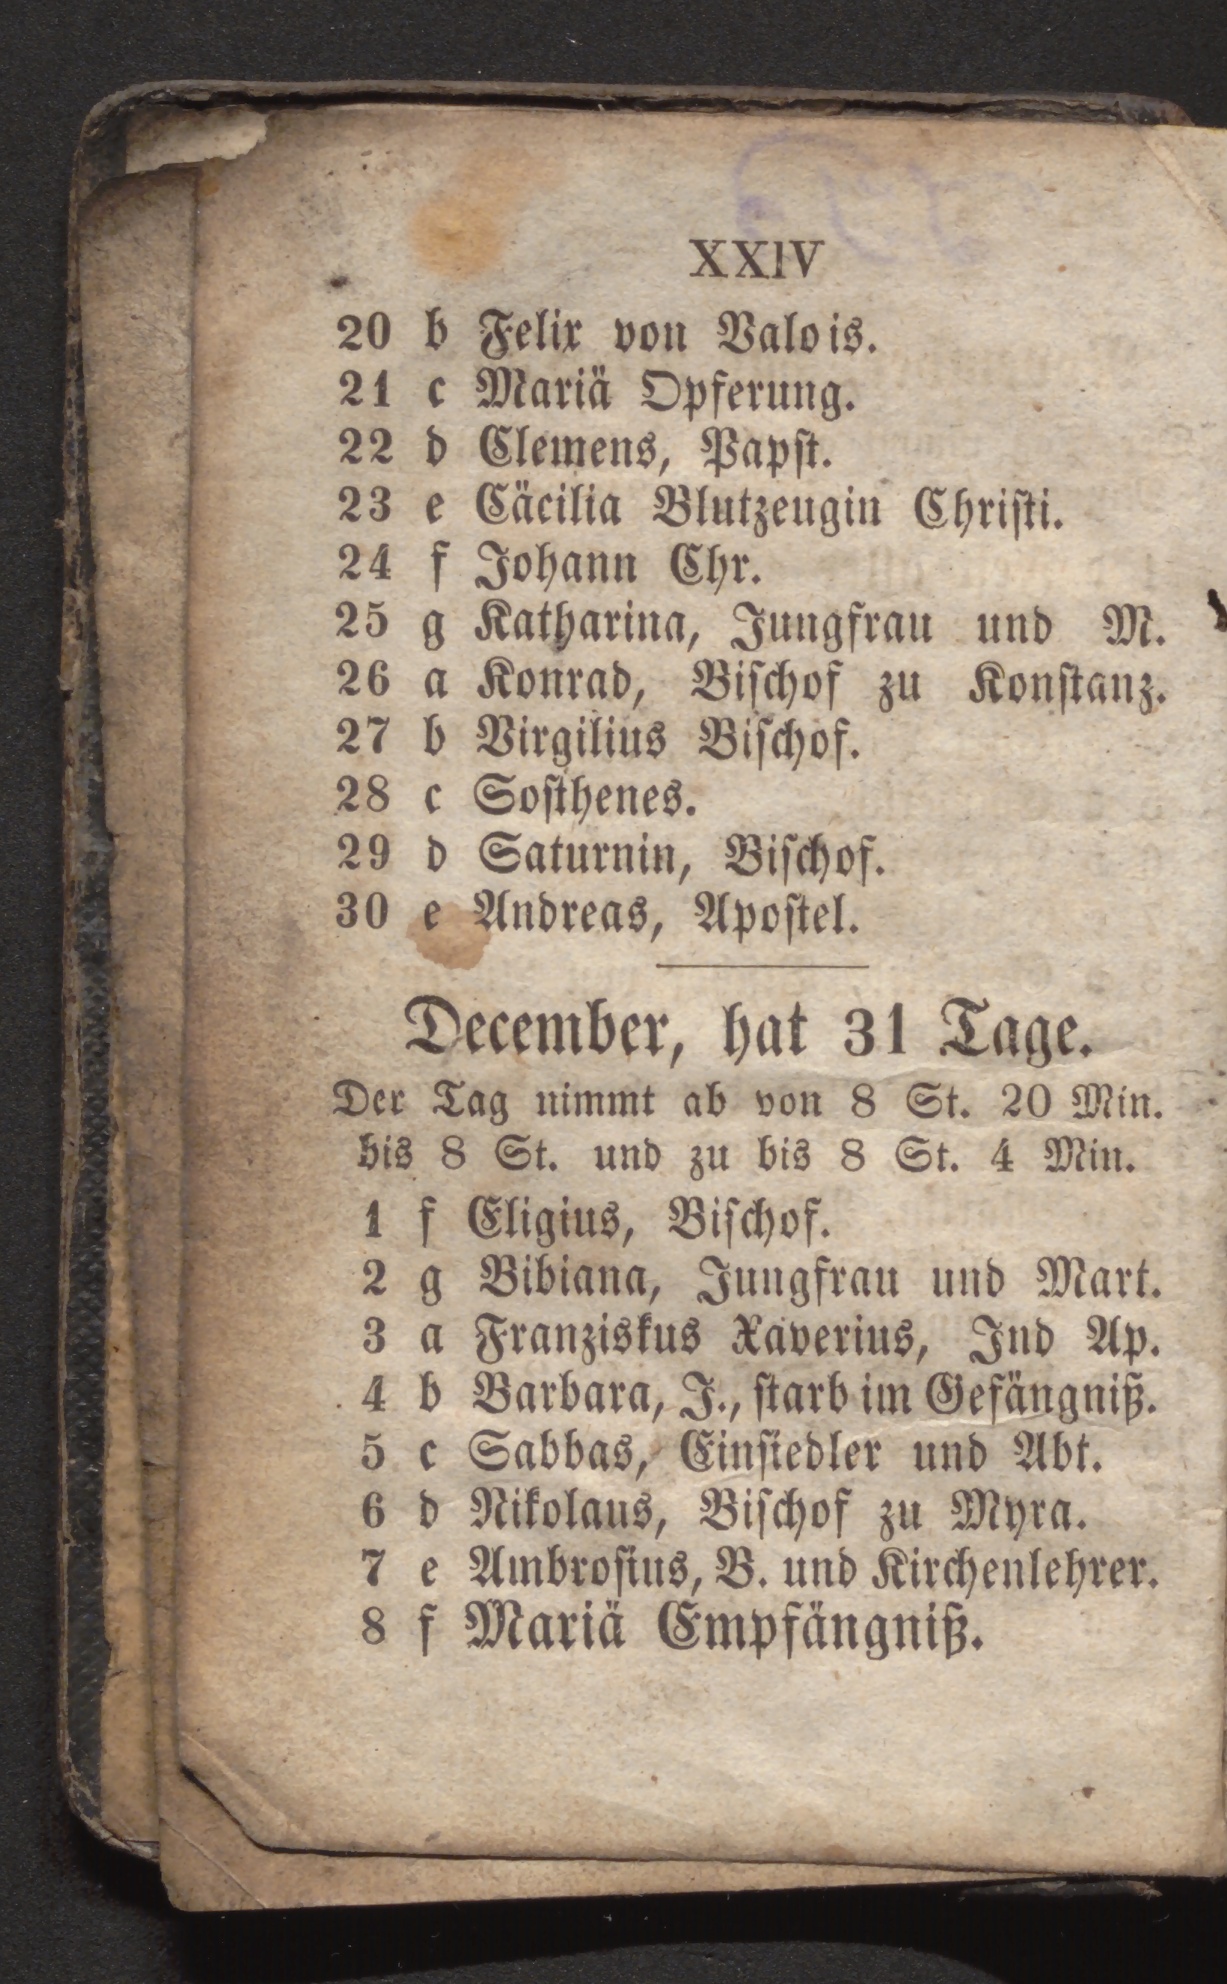 XXIV
20 b Felix von Valois.
21 c Mariä Opferung.
22 d Clemens, Papst.
23 e Cäcilia Blutzeugin Christi.
24 f Johann Chr.
25 g Katharina, Jungfrau und M.
26 a Konrad, Bischof zu Konstanz.
27 b Virgilius Bischof.
28 c Sosthenes.
29 d Saturnin, Bischof.
30 e Andreas, Apostel.
December, hat 31 Tage.
Der Tag nimmt ab von 8 St. 20 Min.
bis 8 St. und zu bis 8 St. 4 Min.
1 f Eligius, Bischof.
2 g Bibiana, Jungfrau und Mart.
3 a Franziskus Xaverius, Ind Ap.
4 b Barbara, J., starb im Gefängniß.
5 c Sabbas, Einsiedler und Abt.
6 d Nikolaus, Bischof zu Myra.
7 e Ambrosius, B. und Kirchenlehrer.
8 f Mariä Empfängniß.